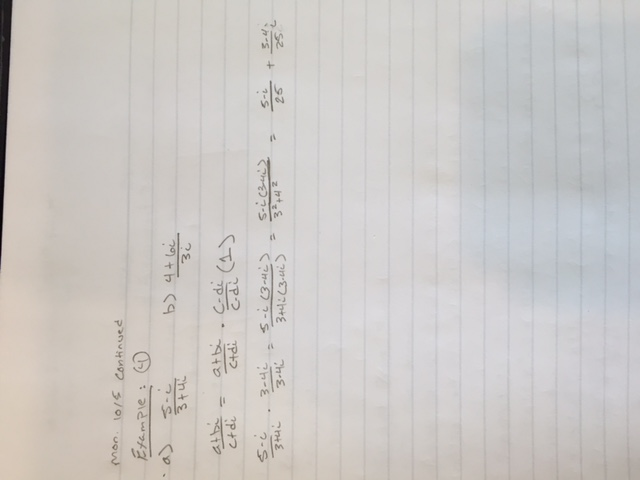 Mon. 10/5 continued
Example: (4)
a) 5-i / 3+4i b) 4+6i / 3i
a+bi / c+di = a+bi / c+di · c-di / c-di (1)
5-i / 3+4i · 3-4i / 3-4i = 5-i(3-4i) / 3+4i(3-4i) = 5-i(3-4i) / 3²+4² = 5-i / 25 + 3-4i / 25 i